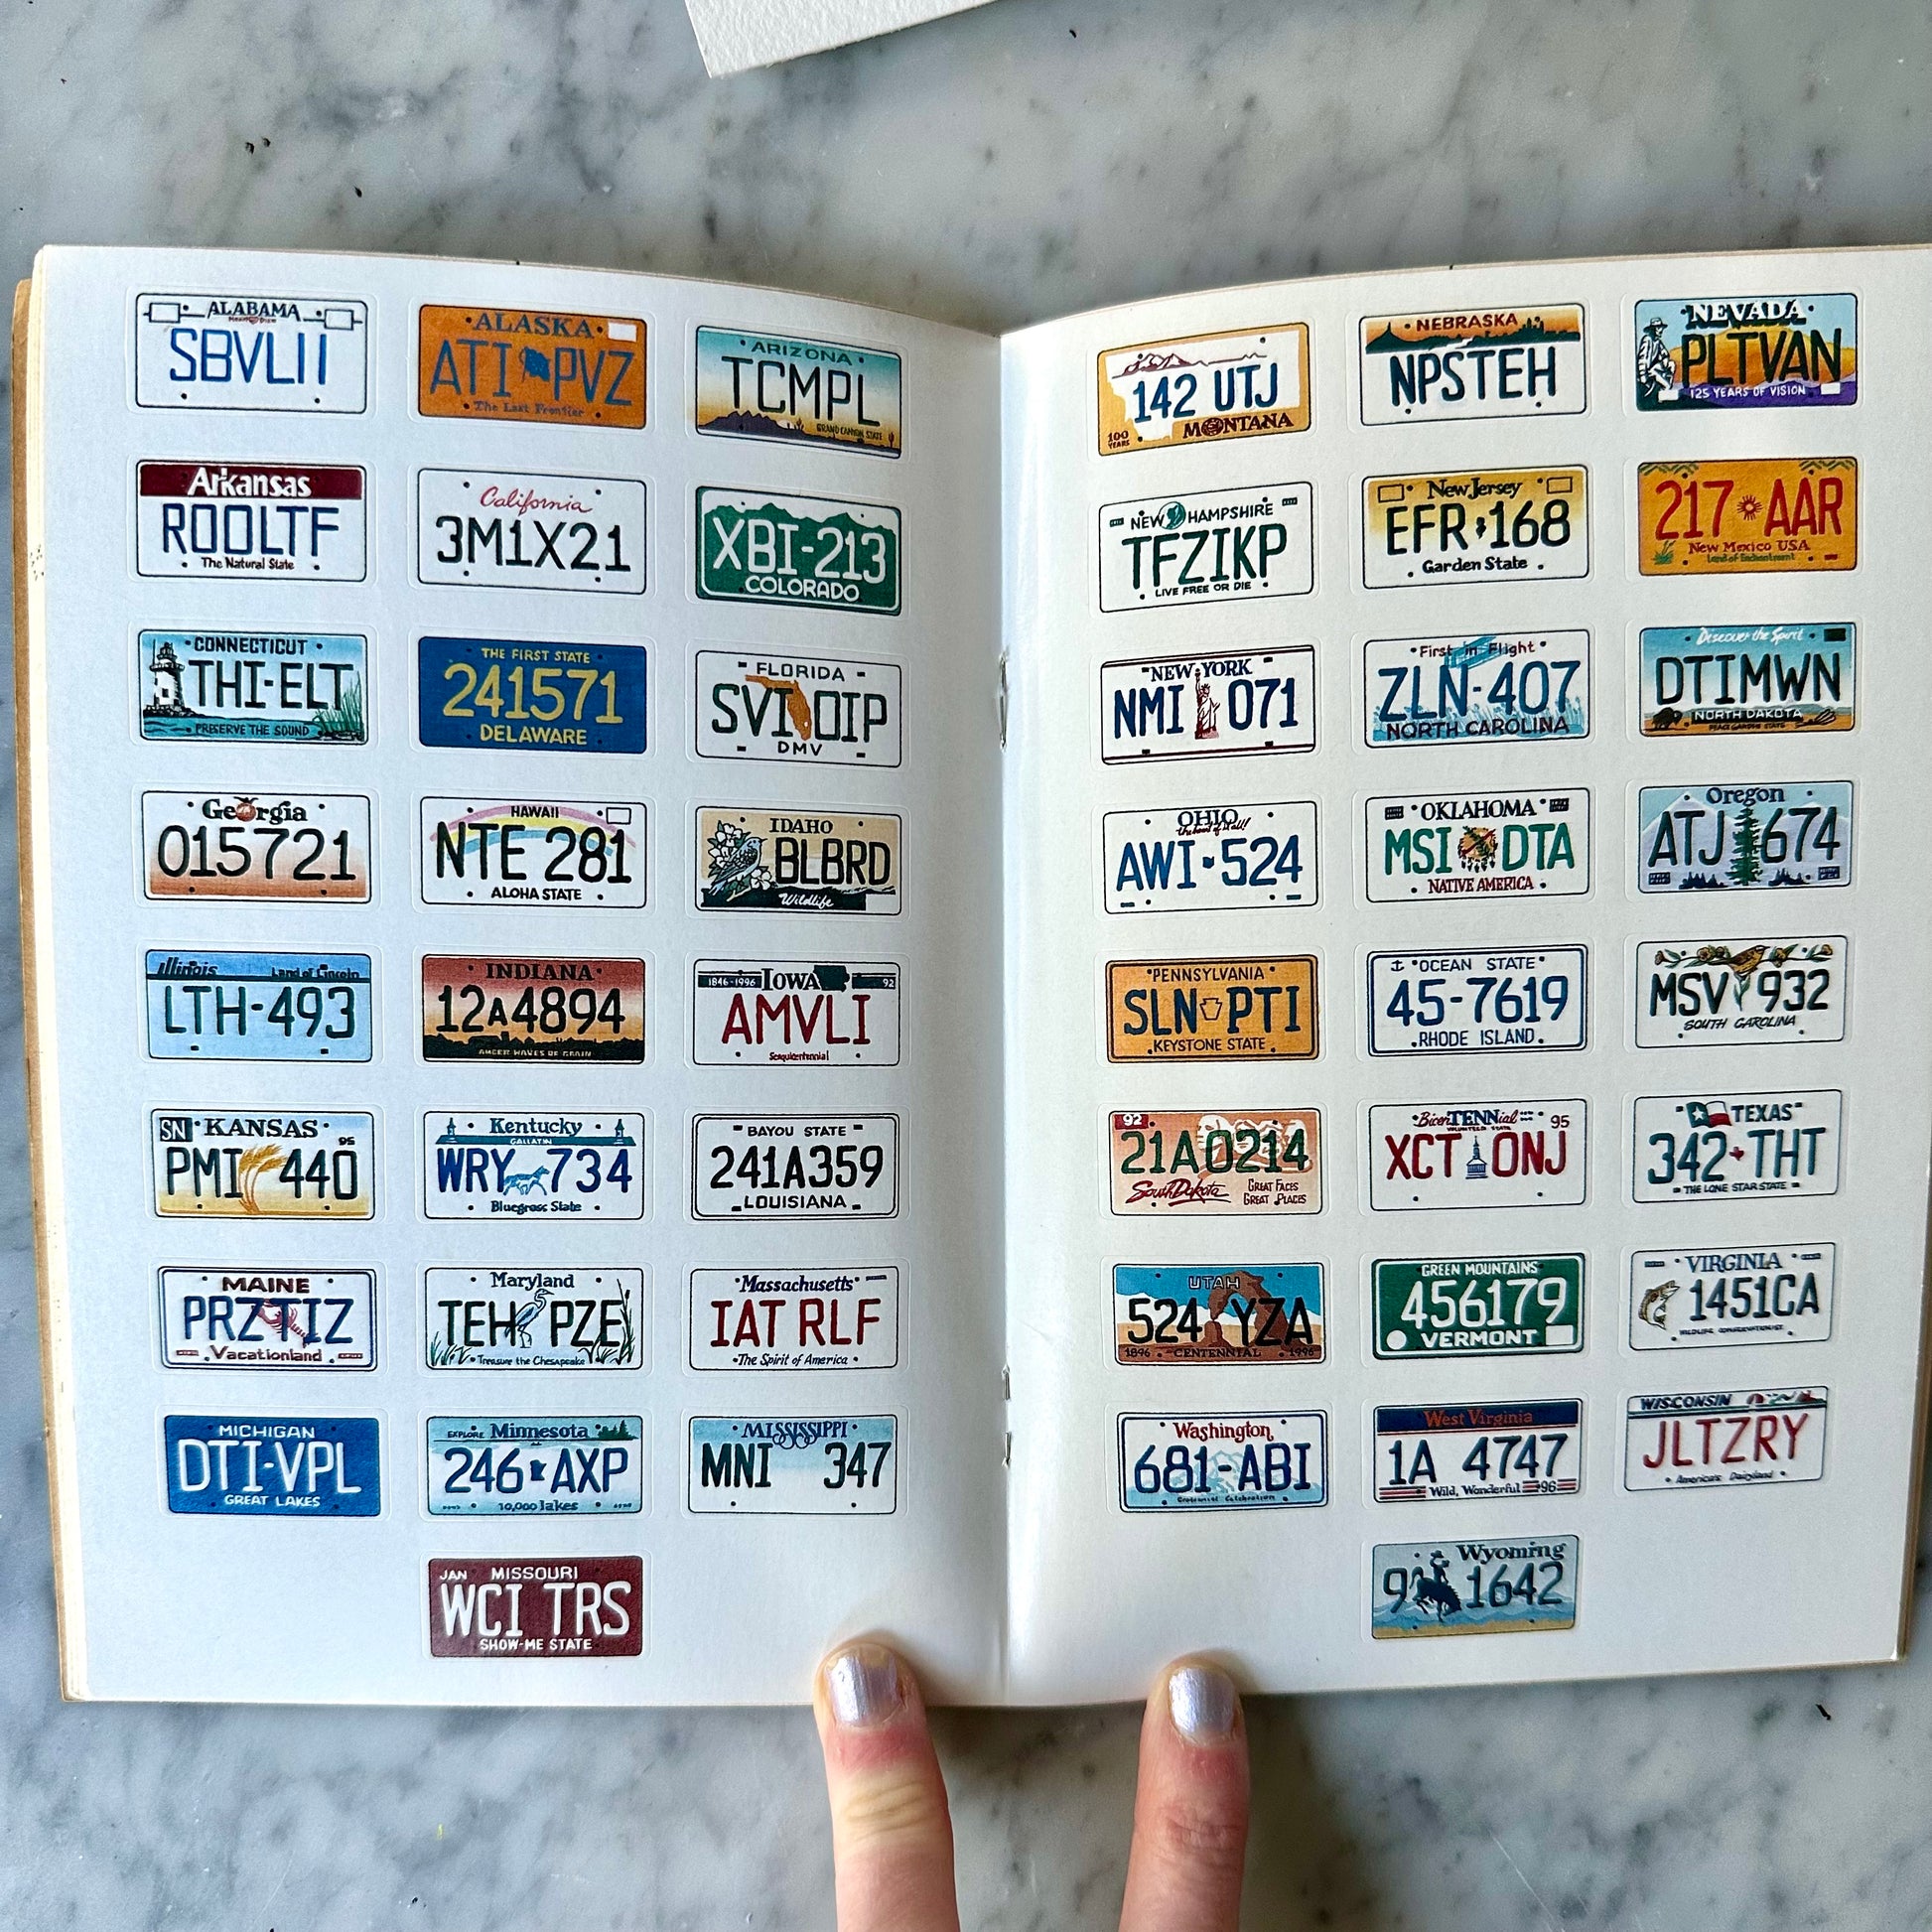 ALABAMA
SBVLII
ALASKA
ATI PVZ
The Last Frontier
ARIZONA
TCMPL
GRAND CANYON STATE
Arkansas
ROOLTF
The Natural State
California
3M1X21
XBI-213
COLORADO
CONNECTICUT
THI-ELT
PRESERVE THE SOUND
THE FIRST STATE
241571
DELAWARE
FLORIDA
SVI OIP
DMV
Georgia
015721
HAWAII
NTE 281
ALOHA STATE
IDAHO
BLBRD
Wildlife
Illinois Land of Lincoln
LTH-493
INDIANA
12A4894
AMBER WAVES OF GRAIN
1846-1996 IOWA 92
AMVLI
Sesquicentennial
SN KANSAS
95
PMI 440
Kentucky
GALLATIN
WRY 734
Bluegrass State
BAYOU STATE
241A359
LOUISIANA
MAINE
PRZTIZ
Vacationland
Maryland
TEH PZE
Treasure the Chesapeake
Massachusetts
IAT RLF
The Spirit of America
MICHIGAN
DTI-VPL
GREAT LAKES
EXPLORE Minnesota
246 AXP
10,000 lakes
MISSISSIPPI
MNI 347
JAN MISSOURI
WCI TRS
SHOW-ME STATE
142 UTJ
100 YEARS
MONTANA
NEBRASKA
NPSTEH
NEVADA
PLTVAN
125 YEARS OF VISION
NEW HAMPSHIRE
TFZIKP
LIVE FREE OR DIE
New Jersey
EFR 168
Garden State
217 AAR
New Mexico USA
Land of Enchantment
NEW YORK
NMI 071
First in Flight
ZLN-407
NORTH CAROLINA
Discover the Spirit
DTIMWN
NORTH DAKOTA
PEACE GARDEN STATE
OHIO
the heart of it all!
AWI·524
OKLAHOMA
MSI DTA
NATIVE AMERICA
Oregon
ATJ 674
PENNSYLVANIA
SLN PTI
KEYSTONE STATE
OCEAN STATE
45-7619
RHODE ISLAND
MSV 932
SOUTH CAROLINA
92
21A0214
South Dakota
GREAT FACES
GREAT PLACES
BicenTENNial
VOLUNTEER STATE
95
XCT ONJ
TEXAS
342 THT
THE LONE STAR STATE
UTAH
524 YZA
1896 CENTENNIAL 1996
GREEN MOUNTAINS
456179
VERMONT
VIRGINIA
1451CA
WILDLIFE CONSERVATIONIST
Washington
681-ABI
Centennial Celebration
West Virginia
1A 4747
Wild, Wonderful 96
WISCONSIN
JLTZRY
America's Dairyland
Wyoming
9 1642